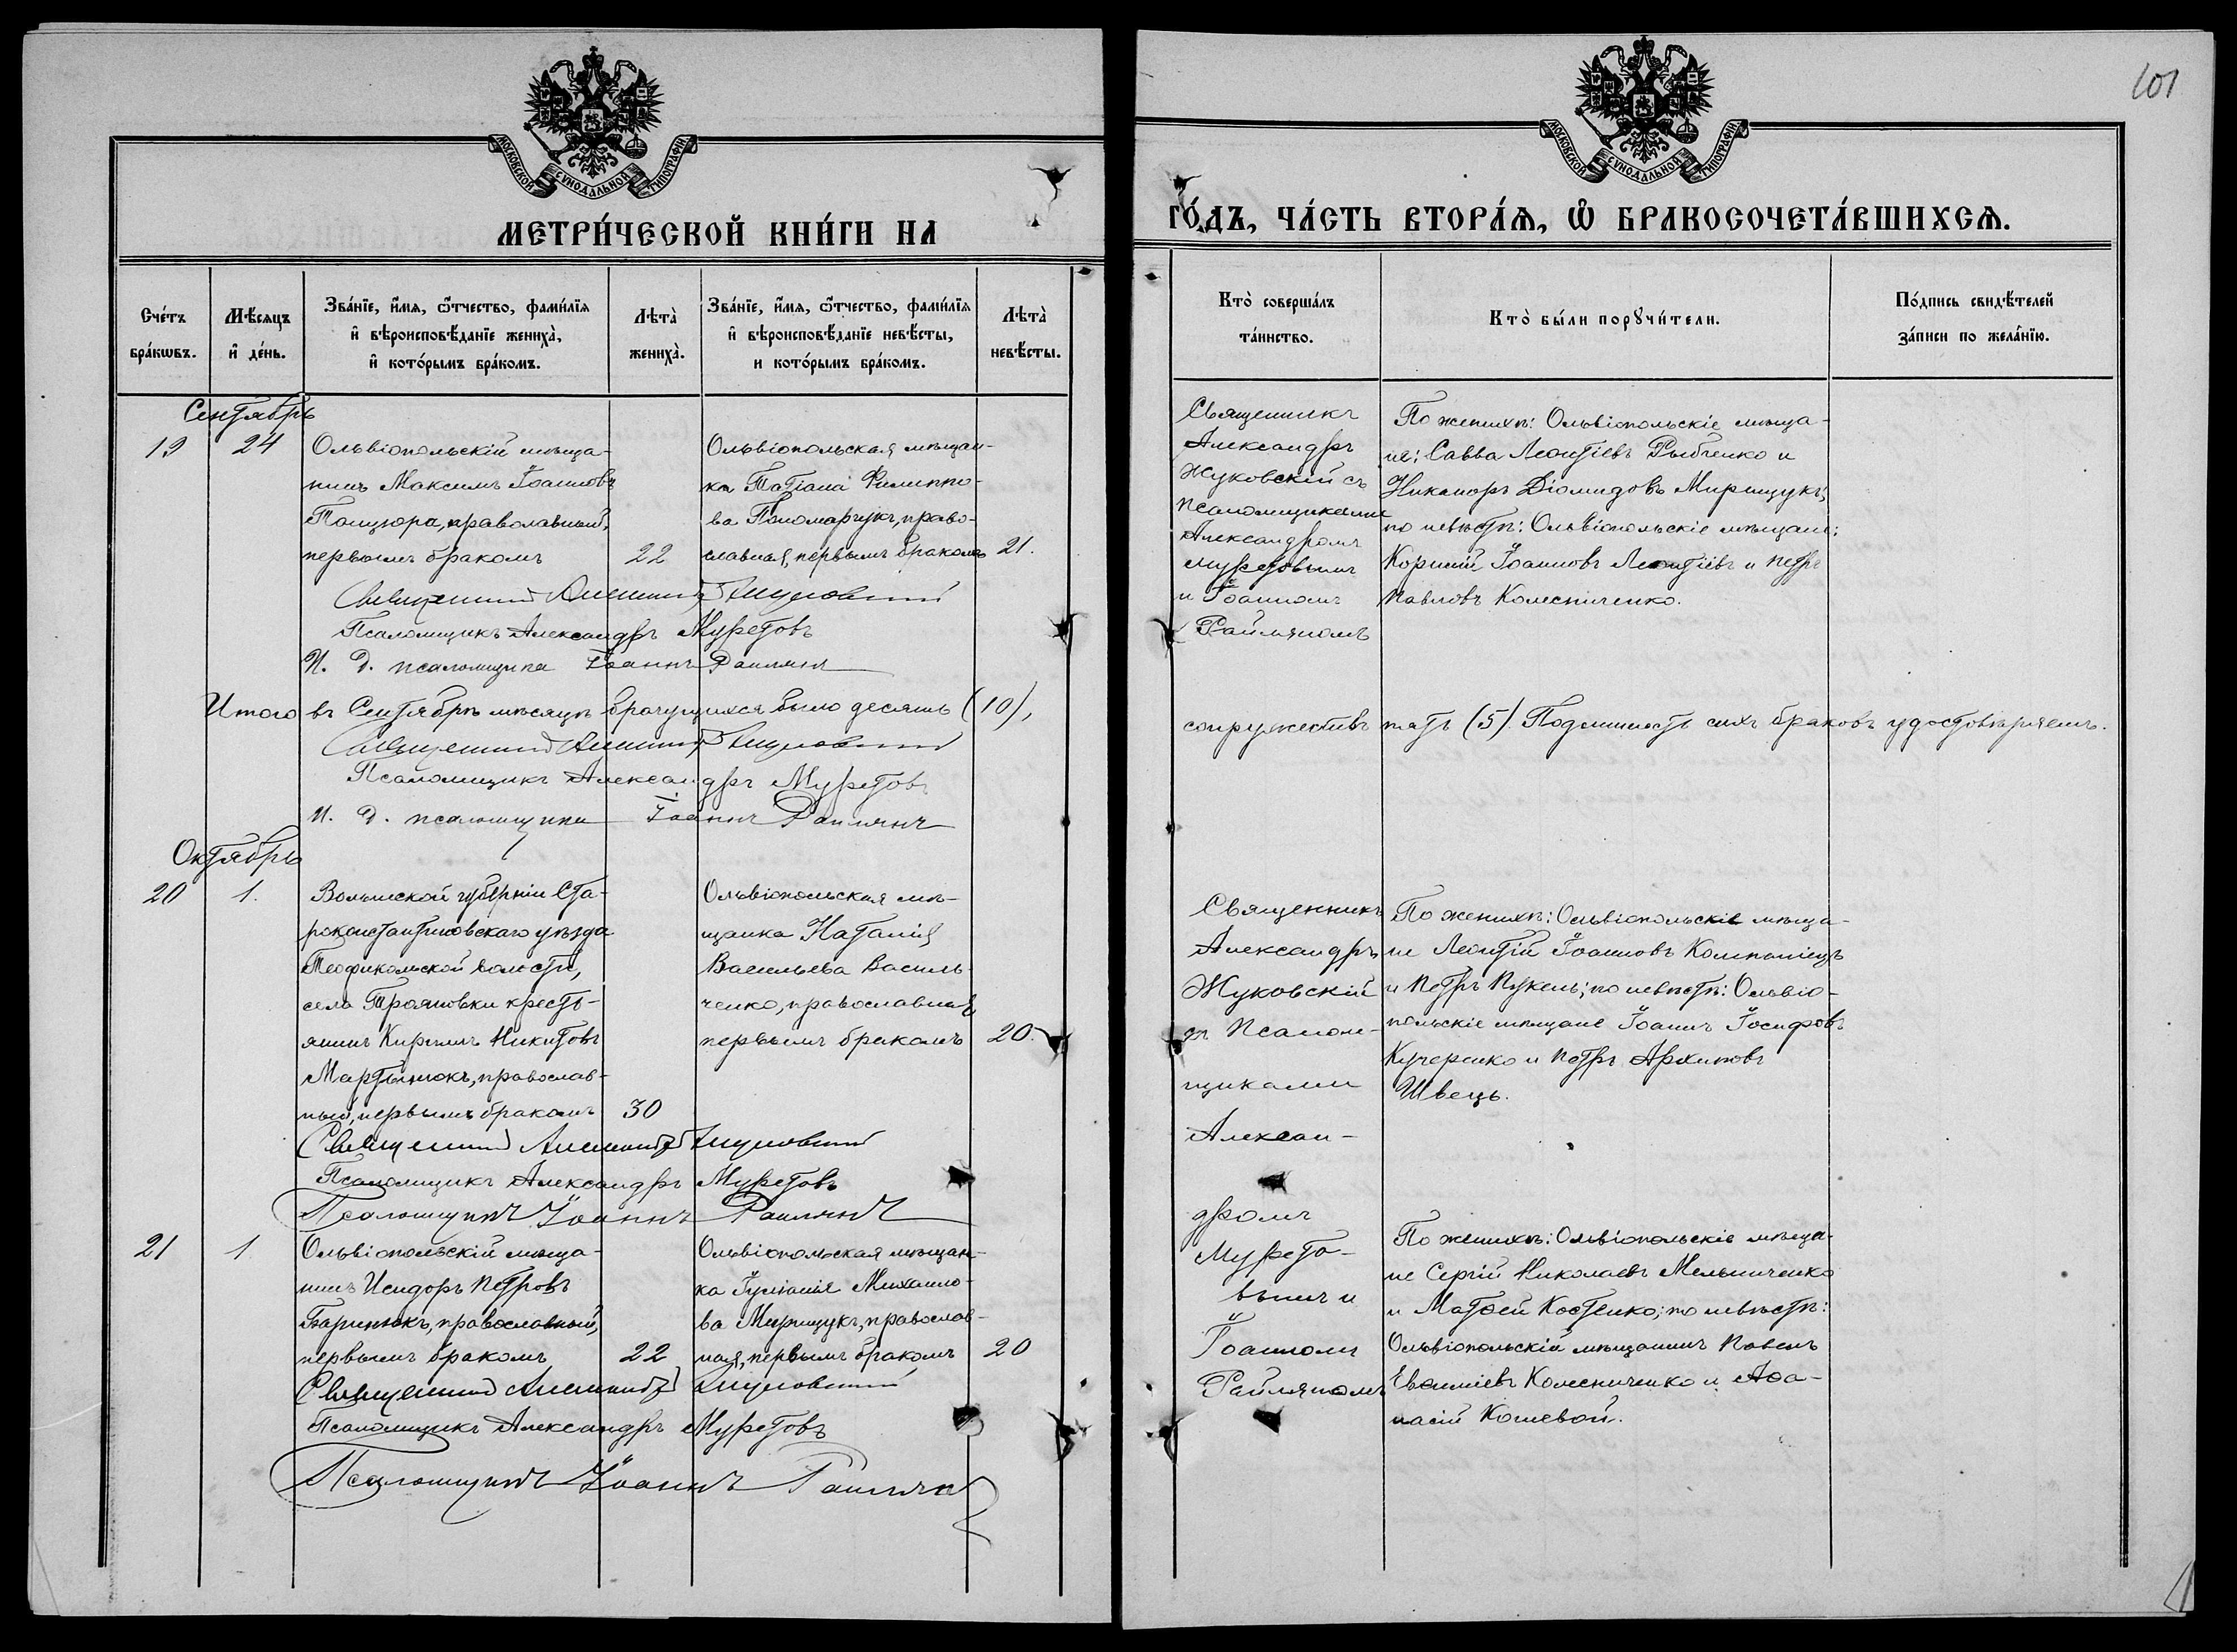 101
МОСКОВСКОЙ СѴНОДАЛЬНОЙ ТИПОГРАФІИ
МОСКОВСКОЙ СѴНОДАЛЬНОЙ ТИПОГРАФІИ
МЕТРИ́ЧЕСКОЙ КНИ́ГИ НА
ГО́ДЪ, ЧА́СТЬ ВТОРА́Ѧ, Ѽ БРАКОСОЧЕТА́ВШИХСѦ.
Сче́тъ
бра́кѡвъ.
Мѣ́сяцъ
и҆ де́нь.
Зва́нїе, и҆́мѧ, ѻ҆́тчество, фами́лїѧ
и҆ вѣроисповѣ́данїе жениха̀,
и҆ кото́рымъ бра́комъ.
Лѣта̀
жениха̀.
Зва́нїе, и҆́мѧ, ѻ҆́тчество, фами́лїѧ
и҆ вѣроисповѣ́данїе невѣ́сты,
и кото́рымъ бра́комъ.
Лѣта̀
невѣ́сты.
Кто̀ соверша́лъ
та́инство.
Кто̀ бы́ли порꙋчи́тели.
По́дпись свидѣ́телей
за́писи по жела́нїю.
Сентябрь
19
24
Ольвіопольскій мѣща-
нинъ Максимъ Іоанновъ
Танцюра, православный,
первымъ бракомъ
22
Ольвіопольская мѣщан-
ка Татіана Филиппо-
ва Пономарчукъ, право-
славная, первымъ бракомъ
21.
Священникъ
Александръ
Жуковскій съ
псаломщиками
Александромъ
Муретовымъ
и Іоанномъ
Раймяномъ
По женихѣ: Ольвіопольскіе мѣща-
не: Савва Леонтіевъ Рыбченко и
Никаноръ Діомидовъ Мирищукъ;
по невѣстѣ: Ольвіопольскіе мѣщане:
Корнилій Іоанновъ Леонтіевъ и Петръ
Павловъ Колесниченко.
Священникъ Александръ Жуковскій
Псаломщикъ Александръ Муретовъ
И. Д. псаломщика Іоаннъ Раилянъ
Итого въ Сентябрѣ мѣсяцѣ брачущихся было десять (10),
супружествъ пять (5). Подлинность сихъ браковъ удостовѣряемъ.
Священникъ Александръ Жуковскій
Псаломщикъ Александръ Муретовъ
И. Д. псаломщика Іоаннъ Раилянъ
Октябрь
20
1.
Волынской губерніи Ста-
роконстантиновскаго уѣзда
Теофипольской волости,
села Трояновки кресть-
янинъ Кириллъ Никитовъ
Мартынюкъ, православ-
ный, первымъ бракомъ
30
Ольвіопольская мѣ-
щанка Наталія
Васильева Василь-
ченко, православная,
первымъ бракомъ
20.
Священникъ
Александръ
Жуковскій
съ Псалом-
щиками
Алексан-
дромъ
Мурето-
вымъ и
Іоанномъ
Раймяномъ
По женихѣ: Ольвіопольскіе мѣща-
не Леонтій Іоанновъ Компаніецъ
и Петръ Пукель; по невѣстѣ: Ольвіо-
польскіе мѣщане Іоаннъ Іосифовъ
Кучеренко и Петръ Архиповъ
Швецъ.
Священникъ Александръ Жуковскій
Псаломщикъ Александръ Муретовъ
Псаломщикъ Іоаннъ Раилянъ
21
1
Ольвіопольскій мѣща-
нинъ Исидоръ Петровъ
Баринюкъ, православный,
первымъ бракомъ
22
Ольвіопольская мѣщан-
ка Іуліанія Михаило-
ва Мирищукъ, православ-
ная, первымъ бракомъ
20
По женихѣ: Ольвіопольскіе мѣща-
не Сергій Николаевъ Мельниченко
и Матѳей Костенко; по невѣстѣ:
Ольвіопольскій мѣщанинъ Павелъ
Евѳиміевъ Колесниченко и Аѳа-
насій Кошевой.
Священникъ Александръ Жуковскій
Псаломщикъ Александръ Муретовъ
Псаломщикъ Іоаннъ Раилянъ